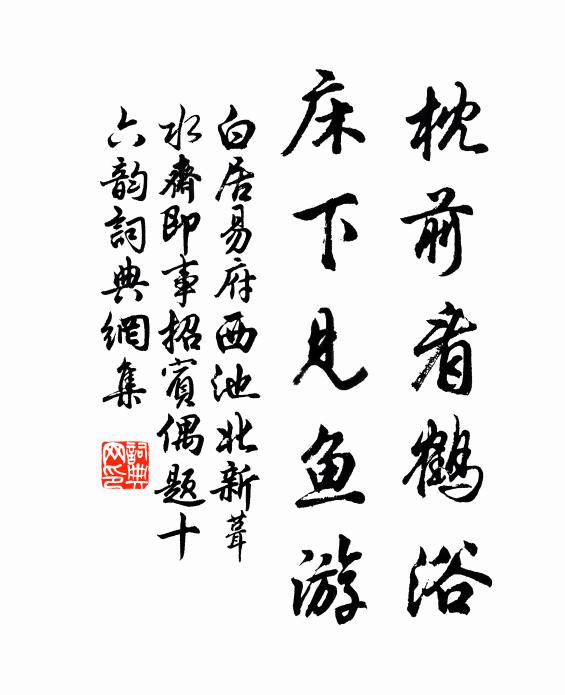 枕前看鹤浴
床下见鱼游
白居易府西池北新葺
水齋即事招賓偶題十
六韵詞典網集
詞典
网印